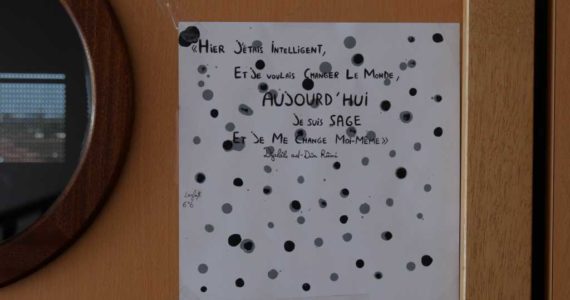 «Hier J'étais Intelligent,
Et Je voulais Changer Le Monde,
AUJOURD'HUI
Je suis SAGE
Et Je Me Change Moi-Même»
Djalâl ad-Dîn Rûmî
6°6